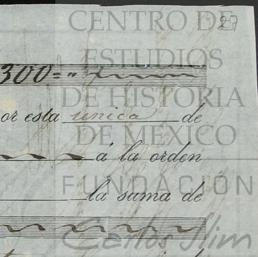 CENTRO DE
27
ESTUDIOS
300=
DE HISTORIA
or esta unica de
DE MÉXICO
á la orden
FUNDACIÓN
la suma de
Carlos Slim